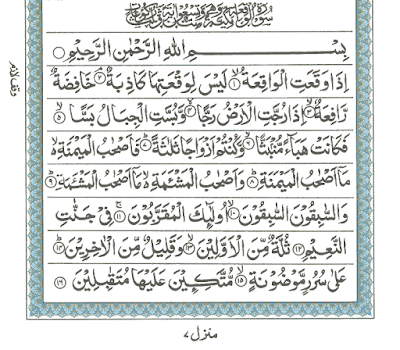 بِسْمِ اللهِ الرَّحْمٰنِ الرَّحِيْمِ
اِذَا وَقَعَتِ الْوَاقِعَةُ ۙ۱ لَيْسَ لِوَقْعَتِهَا كَاذِبَةٌ ۘ۲ خَافِضَةٌ
رَّافِعَةٌ ۙ۳ اِذَا رُجَّتِ الْاَرْضُ رَجًّا ۙ۴ وَّبُسَّتِ الْجِبَالُ بَسًّا ۙ۵
فَكَانَتْ هَبَآءً مُّنْۢبَثًّا ۙ۶ وَّكُنْتُمْ اَزْوَاجًا ثَلٰثَةً ؕ۷ فَاَصْحٰبُ الْمَيْمَنَةِ ۙ
مَاۤ اَصْحٰبُ الْمَيْمَنَةِ ؕ۸ وَاَصْحٰبُ الْمَشْـَٔمَةِ ۙ مَاۤ اَصْحٰبُ الْمَشْـَٔمَةِ ؕ۹
وَالسّٰبِقُوْنَ السّٰبِقُوْنَ ۙ۱۰ اُولٰٓئِكَ الْمُقَرَّبُوْنَ ۚ۱۱ فِيْ جَنّٰتِ
النَّعِيْمِ ۱۲ ثُلَّةٌ مِّنَ الْاَوَّلِيْنَ ۙ۱۳ وَقَلِيْلٌ مِّنَ الْاٰخِرِيْنَ ؕ۱۴
عَلٰى سُرُرٍ مَّوْضُوْنَةٍ ۙ۱۵ مُّتَّكِـِٕيْنَ عَلَيْهَا مُتَقٰبِلِيْنَ ۱۶
منزل ۷